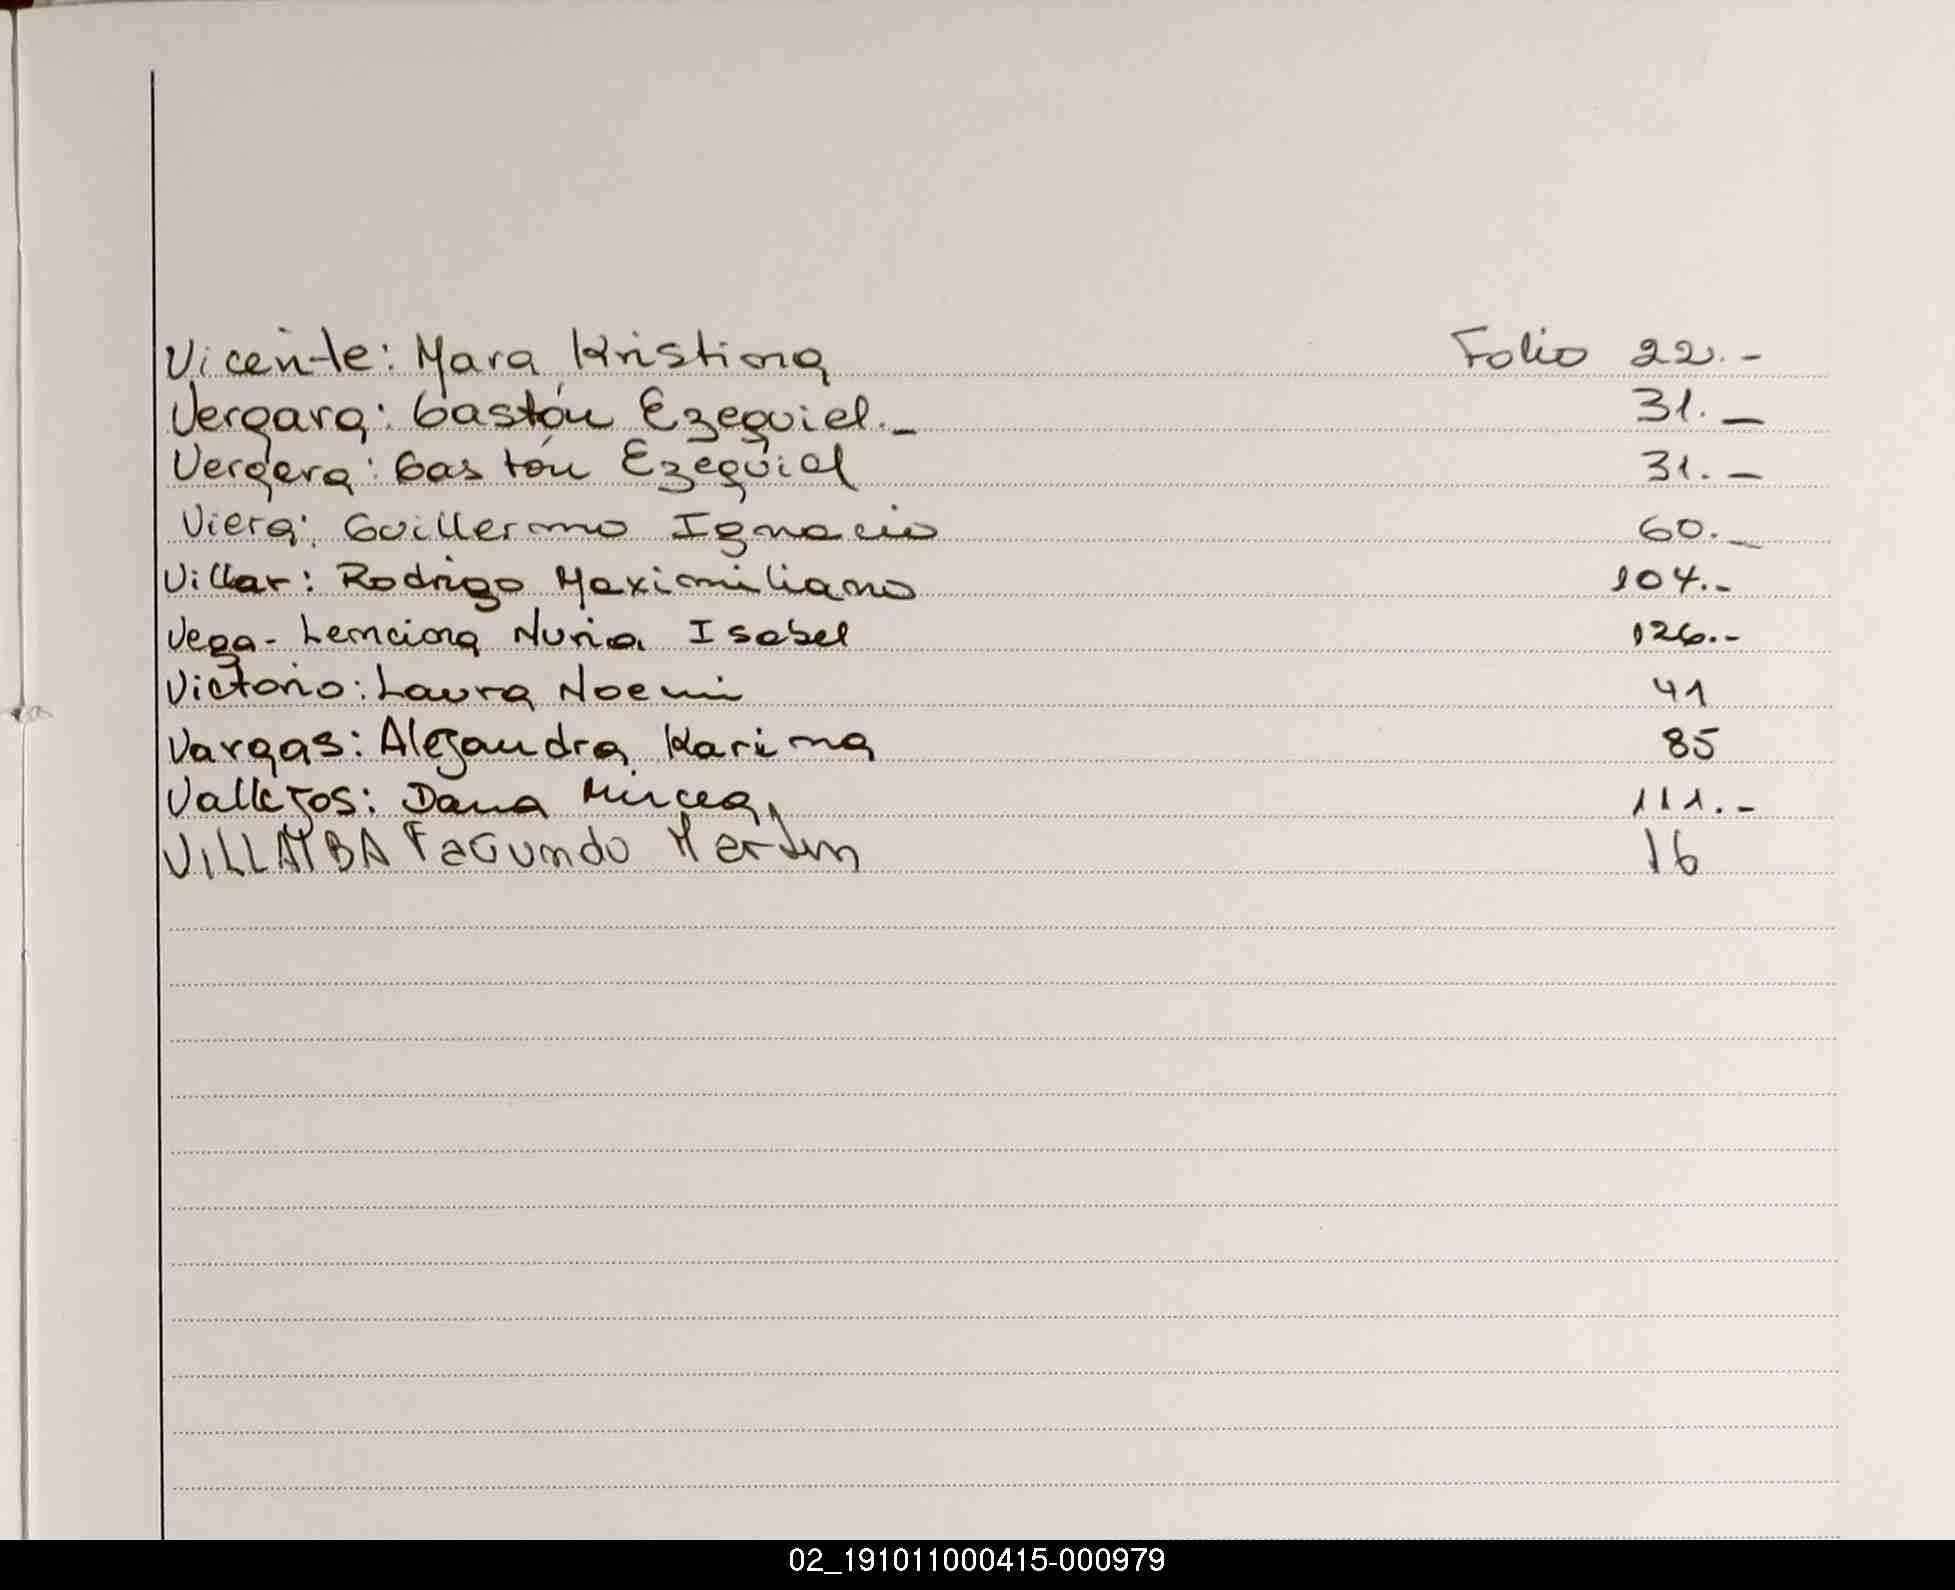 Vicente: Mara Kristina Folio 22.-
Vergara: Gastón Ezequiel.- 31.-
Vergera: Gastón Ezequiel 31.-
Viera: Guillermo Ignacio 60.-
Villar: Rodrigo Maximiliano 104.-
Vega- Nuria Isabel 126.-
Victorio: Laura Noemi 41
Vargas: Alejandra Karina 85
Vallejos: Dana 111.-
VILLALBA Facundo Martin 16
02_191011000415-000979